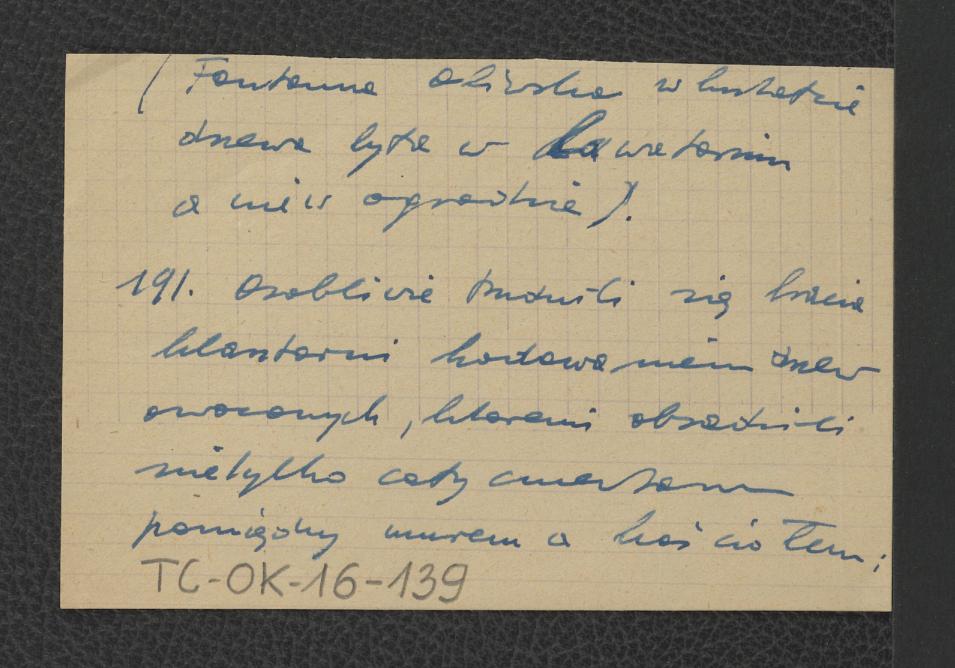 ( Fontanna oliwska w kształcie
drzewa była w Lawatorium
a nie w ogrodzie).
191. Osobliwie trudnili się bracia
klasztorni hodowaniem drzew
owocowych, któremi obsadzili
nietylko cały cmentarz
pomiędzy murem a kościołem;
TC-OK-16-139